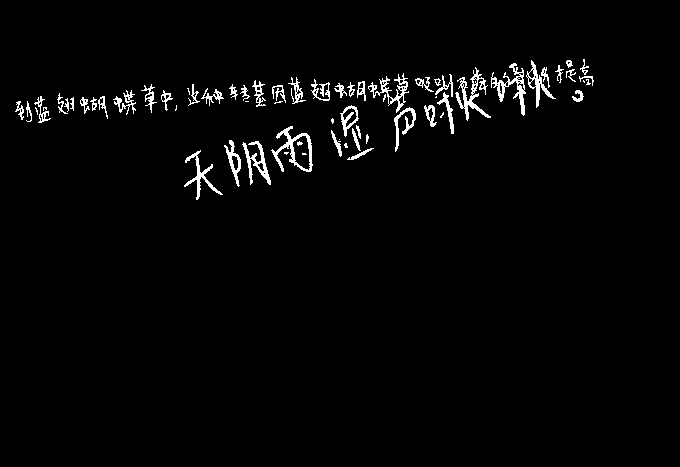 到蓝翅蝴蝶草中,这种转基因蓝翅蝴蝶草吸引提高
天阴雨湿声啾啾。